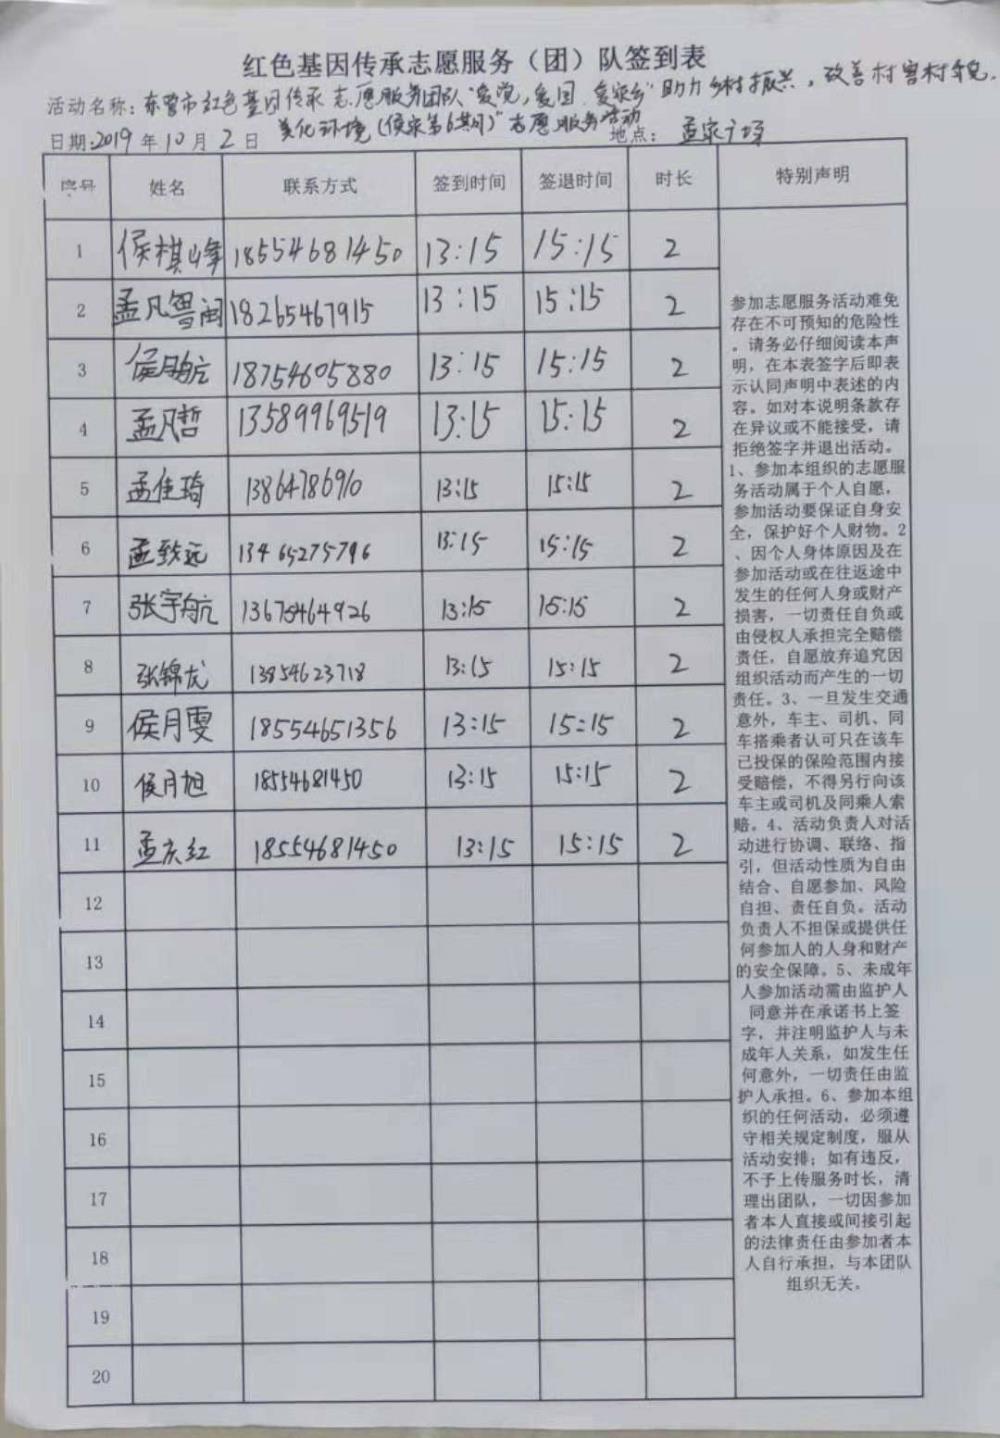 红色基因传承志愿服务（团）队签到表
活动名称：东营市红色基因传承志愿服务团队"爱党，爱国，爱家乡"助力乡村振兴，改善村容村貌，
美化环境（侯家第6期）"志愿服务活动
日期：2019年10月2日 地点：孟家广场
序号 姓名 联系方式 签到时间 签退时间 时长 特别声明
1 侯棋峰 18554681450 13:15 15:15 2
2 孟凡粤闽 18265467915 13:15 15:15 2
3 侯月航 18754605880 13:15 15:15 2
4 孟凡哲 13589969519 13:15 15:15 2
5 孟佳琦 13864786910 13:15 15:15 2
6 孟致远 13465275796 13:15 15:15 2
7 张宇航 13675464926 13:15 15:15 2
8 张锦龙 13854623718 13:15 15:15 2
9 侯月雯 18554651356 13:15 15:15 2
10 侯月旭 18554681450 13:15 15:15 2
11 孟庆红 18554681450 13:15 15:15 2
12
13
14
15
16
17
18
19
20
参加志愿服务活动难免
存在不可预知的危险性
。请务必仔细阅读本声
明，在本表签字后即表
示认同声明中表述的内
容。如对本说明条款存
在异议或不能接受，请
拒绝签字并退出活动。
1、参加本组织的志愿服
务活动属于个人自愿，
参加活动要保证自身安
全，保护好个人财物。2
、因个人身体原因及在
参加活动或在往返途中
发生的任何人身或财产
损害，一切责任自负或
由侵权人承担完全赔偿
责任，自愿放弃追究因
组织活动而产生的一切
责任。3、一旦发生交通
意外，车主、司机、同
车搭乘者认可只在该车
已投保的保险范围内接
受赔偿，不得另行向该
车主或司机及同乘人索
赔。4、活动负责人对活
动进行协调、联络、指
引，但活动性质为自由
结合、自愿参加、风险
自担、责任自负。活动
负责人不担保或提供任
何参加人的人身和财产
的安全保障。5、未成年
人参加活动需由监护人
同意并在承诺书上签
字，并注明监护人与未
成年人关系，如发生任
何意外，一切责任由监
护人承担。6、参加本组
织的任何活动，必须遵
守相关规定制度，服从
活动安排；如有违反，
不予上传服务时长，清
理出团队，一切因参加
者本人直接或间接引起
的法律责任由参加者本
人自行承担，与本团队
组织无关。